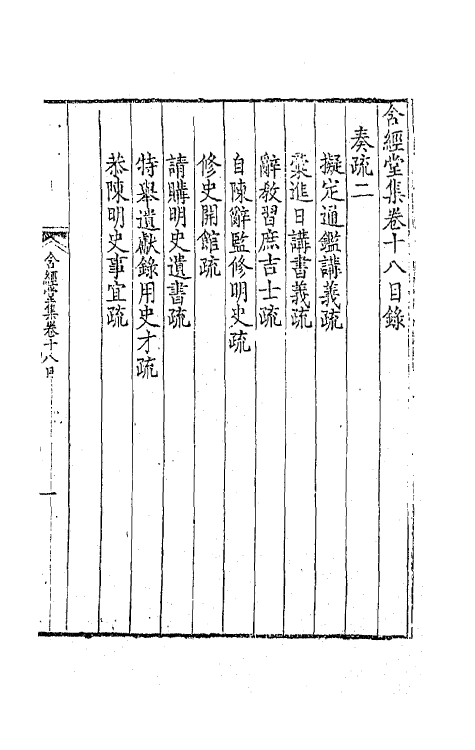 含經堂集卷十八目錄
奏疏二
擬定通鑑講義疏
彚進日講書義疏
辭教習庶吉士疏
自陳辭監修明史疏
修史開館疏
請購明史遺書疏
特舉遺獻錄用史才疏
恭陳明史事宜疏
含經堂集卷十八目
一